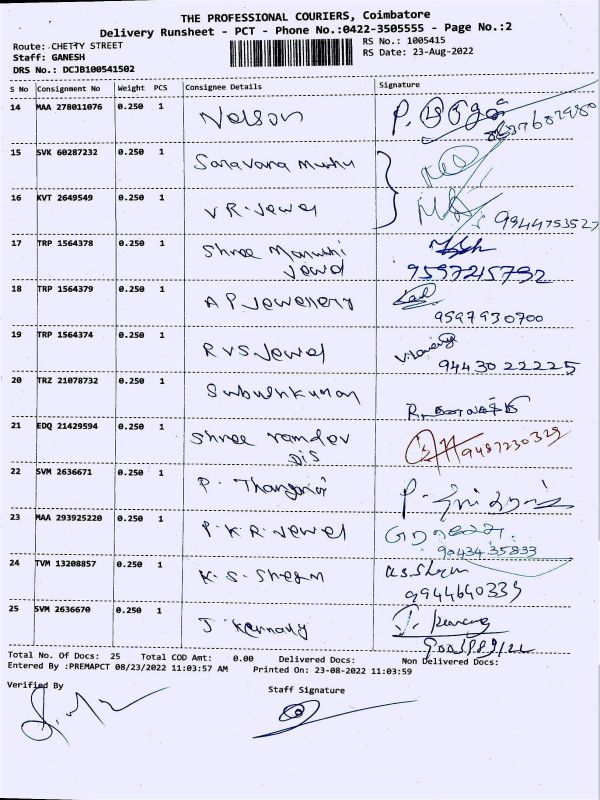 THE PROFESSIONAL COURIERS, Coimbatore
Delivery Runsheet - PCT - Phone No.:0422-3505555 - Page No.:2
Route: CHETTY STREET
RS No.: 1005415
Staff: GANESH
RS Date: 23-Aug-2022
DRS No.: DCJB100541502
S No Consignment No Weight PCS Consignee Details Signature
14 MAA 278011076 0.250 1 Nelson P.
15 SVK 60287232 0.250 1 Saravana Muthu
16 KVT 2649549 0.250 1 V R. Jewel 9944753527
17 TRP 1564378 0.250 1 Shree Maruthi
Jewel 9597215792
18 TRP 1564379 0.250 1 A P Jewellery
9597930700
19 TRP 1564374 0.250 1 R V S Jewel
94430 22225
20 TRZ 21078732 0.250 1 Subush kumar
R.
21 EDQ 21429594 0.250 1 Shree ramdev
9487230329
22 SVM 2636671 0.250 1 P. P.
23 MAA 293925220 0.250 1 P. K. R. Jewel
90434 35833
24 TVM 13208857 0.250 1 K. S. Sheram K.S. Sheram
9944640339
25 SVM 2636670 0.250 1 J. Kennady J.
Total No. Of Docs: 25 Total COD Amt: 0.00 Delivered Docs: Non Delivered Docs:
Entered By :PREMAPCT 08/23/2022 11:03:57 AM Printed On: 23-08-2022 11:03:59
Verified By Staff Signature